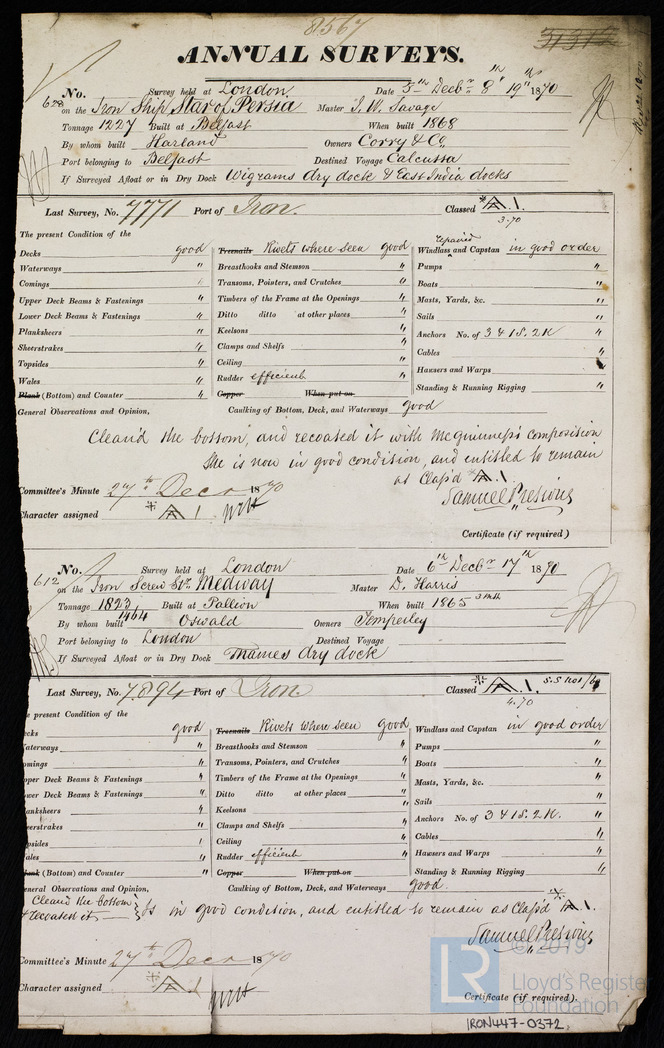 8567
ANNUAL SURVEYS.
No. 628 Survey held at London Date 5th Decbr 8th 19th 1870
on the Iron Ship Star of Persia Master J. W. Savage
Tonnage 1227 Built at Belfast When built 1868
By whom built Harland Owners Corry & Co,
Port belonging to Belfast Destined Voyage Calcutta
If Surveyed Afloat or in Dry Dock Wigrams dry dock & East India docks
Last Survey, No. 7771 Port of Iron. Classed *A.1.
3.70
The present Condition of the
Decks good Treenails Rivets where seen good Windlass and Capstan repaired in good order
Waterways " Breasthooks and Stemson " Pumps "
Comings " Transoms, Pointers, and Crutches " Boats "
Upper Deck Beams & Fastenings " Timbers of the Frame at the Openings " Masts, Yards, &c. "
Lower Deck Beams & Fastenings " Ditto ditto at other places " Sails "
Planksheers " Keelsons " Anchors No. of 3 4 1S. 2K "
Sheerstrakes " Clamps and Shelfs " Cables "
Topsides " Ceiling " Hawsers and Warps "
Wales " Rudder efficient Standing & Running Rigging "
Plank (Bottom) and Counter " Copper When put on
General Observations and Opinion, Caulking of Bottom, Deck, and Waterways good
Clean'd the bottom, and recoated it with McGuinness's composition
She is now in good condition, and entitled to remain
as Class'd *A.1.
Committee's Minute 27th Decr 1870 Samuel Pretious
Character assigned *A1
Certificate (if required)
No. 612 Survey held at London Date 6th Decbr 17th 1870
on the Iron Screw Str. Medway Master D. Harris
Tonnage 1823 Built at Pallion When built 1865 3 mth
1464
By whom built Oswald Owners Temperley
Port belonging to London Destined Voyage
If Surveyed Afloat or in Dry Dock Thames dry dock
Last Survey, No. 7.894 Port of Iron. Classed *A.1.
4.70
e present Condition of the
cks good Treenails Rivets where seen good Windlass and Capstan in good order
aterways " Breasthooks and Stemson " Pumps "
omings " Transoms, Pointers, and Crutches " Boats "
pper Deck Beams & Fastenings " Timbers of the Frame at the Openings " Masts, Yards, &c. "
wer Deck Beams & Fastenings " Ditto ditto at other places " Sails "
anksheers " Keelsons " Anchors No. of 3 4 1S. 2K. "
eerstrakes " Clamps and Shelfs " Cables "
psides " Ceiling " Hawsers and Warps "
ales " Rudder efficient Standing & Running Rigging "
lank (Bottom) and Counter " Copper When put on
eneral Observations and Opinion, Caulking of Bottom, Deck, and Waterways good
Clean'd the bottom
& recoated it Is in good condition, and entitled to remain as Class'd *A 1.
Samuel Pretious
Committee's Minute 27th Decr 1870
Character assigned *A1
Certificate (if required).
LR © 2019
Lloyd's Register
Foundation
IRON447-0372